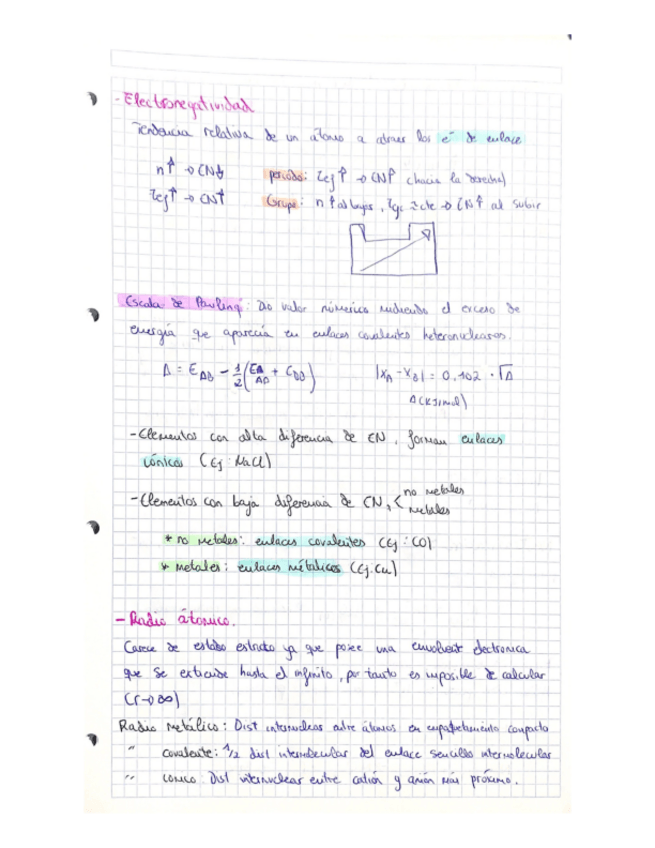 - Electronegatividad
Tendencia relativa de un átomo a atraer los e⁻ de enlace
n↑ → EN↓ periódo: Zef↑ → EN↑ (hacia la derecha)
Zef↑ → EN↑ Grupo: n↑ al bajar, Zef ≈ cte → EN↑ al subir
Escala de Pauling: Dio valor númerico midiendo el exceso de
energía que aparecía en enlaces covalentes heteronucleares.
Δ = E_AB - 1/2 (E_AA + E_BB) |X_A - X_B| = 0,102 · √Δ
Δ (KJ/mol)
- Elementos con alta diferencia de EN, forman enlaces
iónicos (Ej: NaCl)
- Elementos con baja diferencia de EN, < no metales
metales
* no metales: enlaces covalentes (Ej: CO)
* metales: enlaces métalicos (Ej. Cu)
- Radio átomico.
Carece de estricto ya que posee una envolvente electronica
que se extiende hasta el infinito, por tanto es imposible de calcular
(r→∞)
Radio Metálico: Dist internuclear entre átomos en empaquetamiento compacto
" covalente: 1/2 dist del enlace sencillo intermolecular
" iónico: Dist internuclear entre catión y anión más próximo.